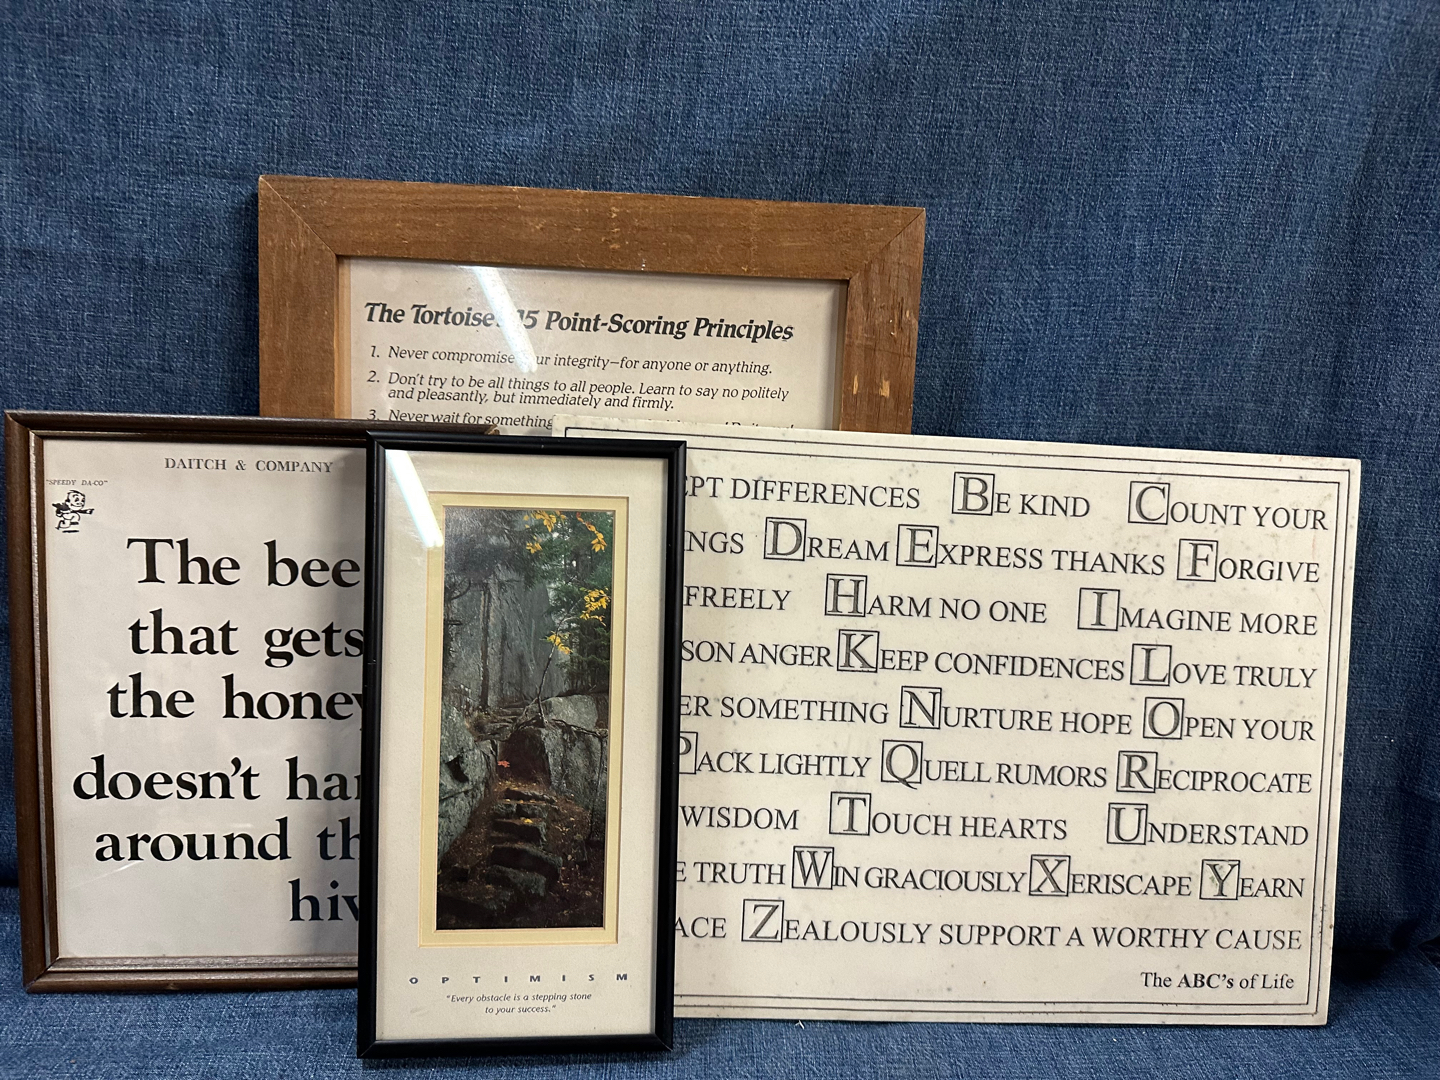 The Tortoise's 15 Point-Scoring Principles
1. Never compromise your integrity—for anyone or anything.
2. Don't try to be all things to all people. Learn to say no politely
and pleasantly, but immediately and firmly.
3. Never wait for something
DAITCH & COMPANY
"SPEEDY DA-CO"
The bee
that gets
the honey
doesn't
around
OPTIMISM
"Every obstacle is a stepping stone
to your success."
DIFFERENCES BE KIND COUNT YOUR
DREAM EXPRESS THANKS FORGIVE
FREELY HARM NO ONE IMAGINE MORE
ANGER KEEP CONFIDENCES LOVE TRULY
SOMETHING NURTURE HOPE OPEN YOUR
PACK LIGHTLY QUELL RUMORS RECIPROCATE
WISDOM TOUCH HEARTS UNDERSTAND
TRUTH WIN GRACIOUSLY XERISCAPE YEARN
ZEALOUSLY SUPPORT A WORTHY CAUSE
The ABC's of Life